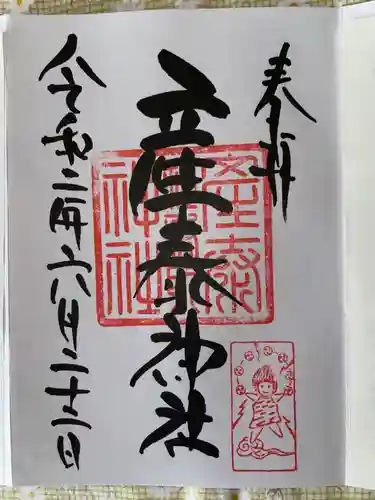 奉拝
産泰神社
令和二年六月二十二日
産泰神社